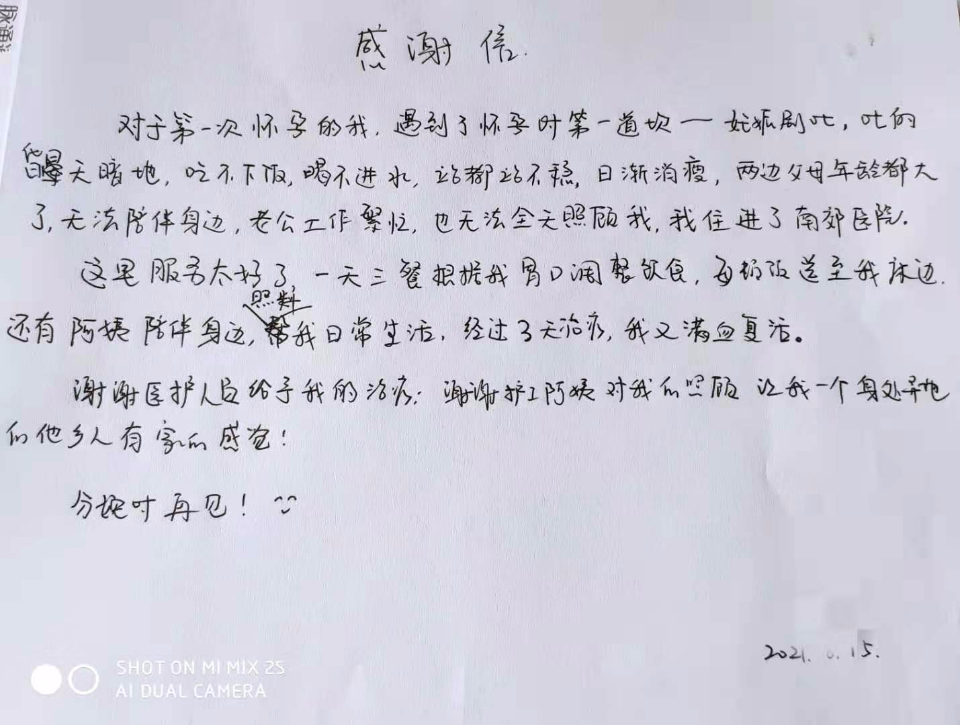 脉通
感谢信.
对于第一次怀孕的我，遇到了怀孕时第一道坎—妊娠剧吐，吐的
昏天暗地，吃不下饭，喝不进水，站都站不稳，日渐消瘦，两边父母年龄都大
了，无法陪伴身边，老公工作繁忙，也无法全天照顾我，我住进了南郊医院.
这里服务太好了，一天三餐根据我胃口调整饮食，每顿饭送至我床边.
照料
还有阿姨陪伴身边，我日常生活，经过3天治疗，我又满血复活。
谢谢医护人员给予我的治疗；谢谢护工阿姨对我的照顾 让我一个身处异地
的他乡人有家的感觉！
分娩时再见！
2021. .15.
SHOT ON MI MIX 2S
AI DUAL CAMERA